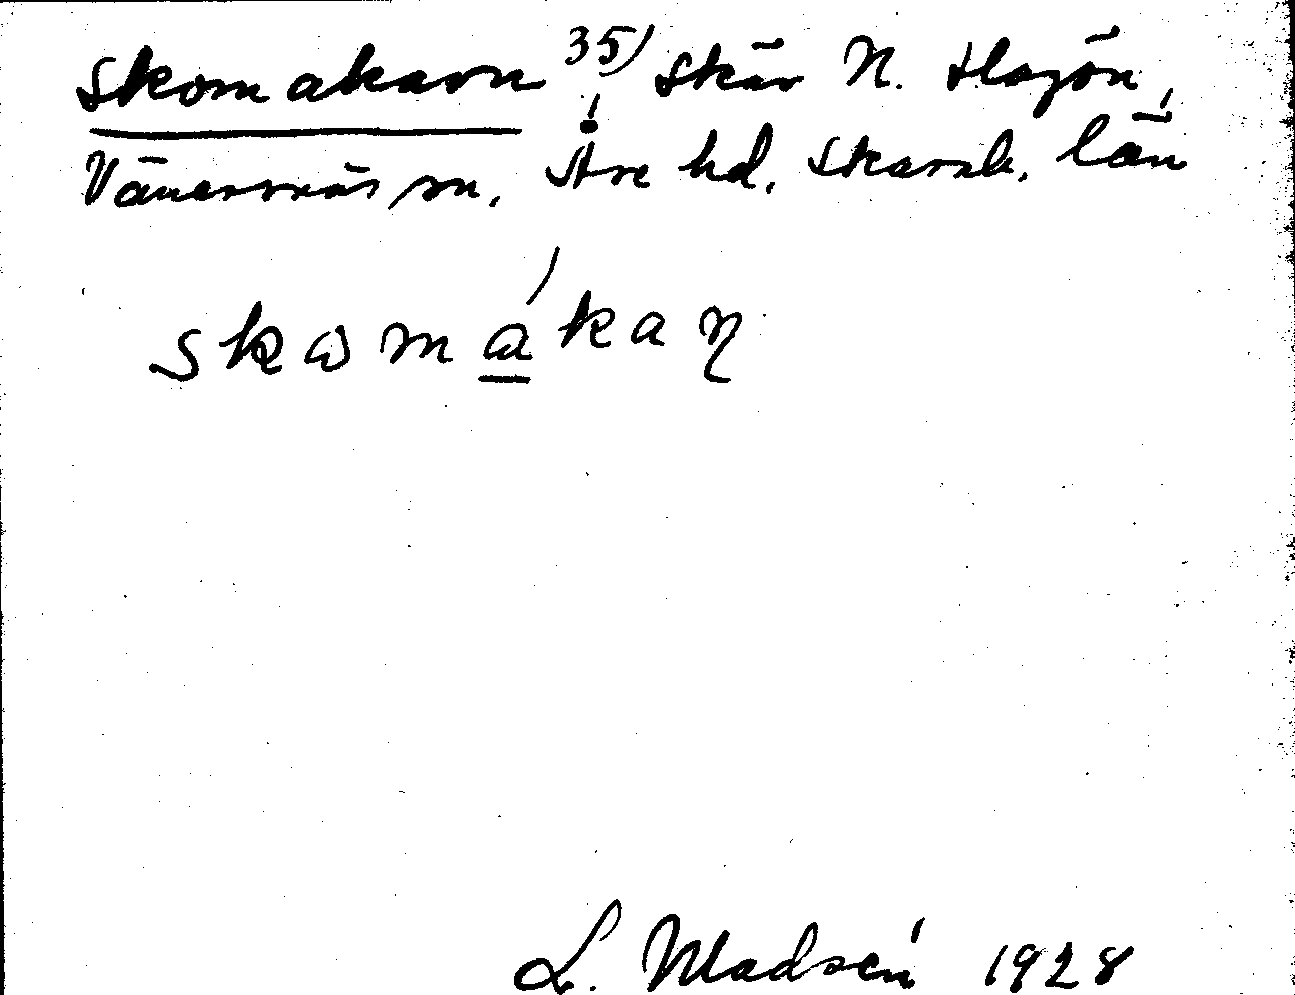 Skomakarn 35) Skär N. Hagön,
Vänersnäs sn, Åse hd, Skarab. län
skωmákaŋ
L. Madsén 1928